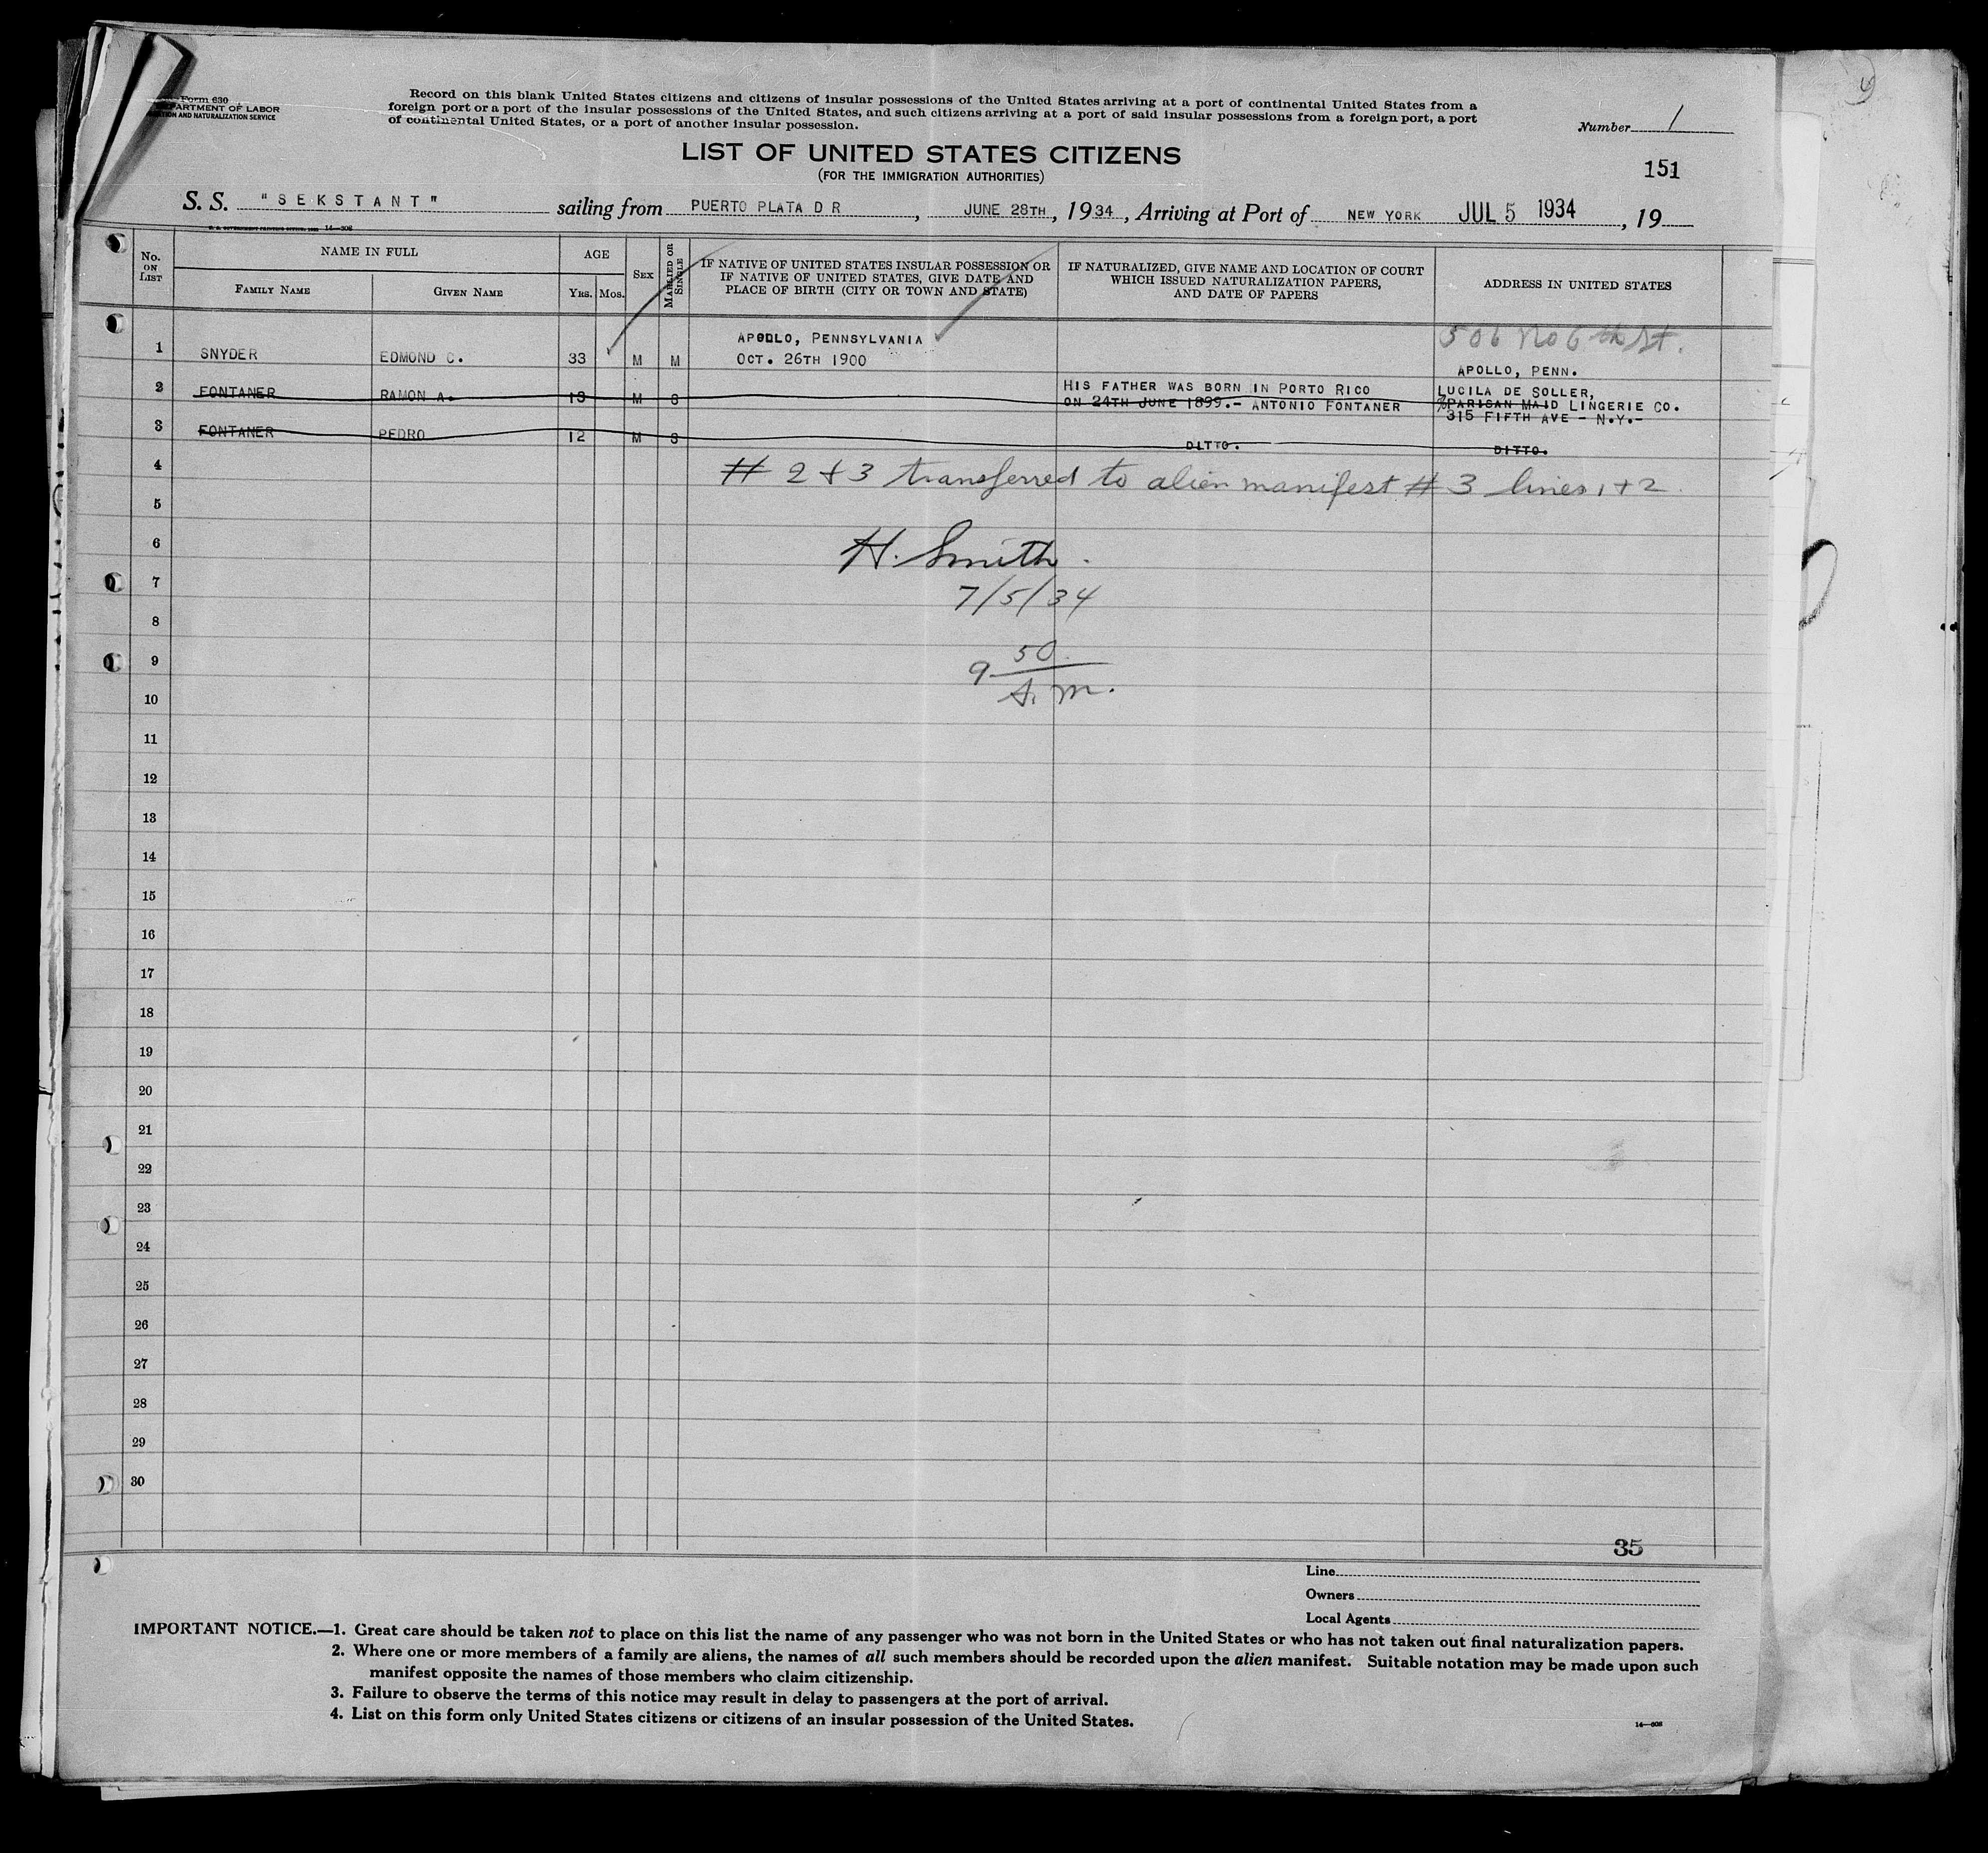 Form 630
DEPARTMENT OF LABOR
AND NATURALIZATION SERVICE
Record on this blank United States citizens and citizens of insular possessions of the United States arriving at a port of continental United States from a
foreign port or a port of the insular possessions of the United States, and such citizens arriving at a port of said insular possessions from a foreign port, a port
of continental United States, or a port of another insular possession.
Number 1
LIST OF UNITED STATES CITIZENS
(FOR THE IMMIGRATION AUTHORITIES)
151
S. S. "SEKSTANT" sailing from PUERTO PLATA D R, JUNE 28TH, 1934, Arriving at Port of NEW YORK JUL 5 1934, 19
14—608
No. ON LIST
NAME IN FULL
FAMILY NAME
GIVEN NAME
AGE
YRS. MOS.
SEX
MARRIED OR SINGLE
IF NATIVE OF UNITED STATES INSULAR POSSESSION OR
IF NATIVE OF UNITED STATES, GIVE DATE AND
PLACE OF BIRTH (CITY OR TOWN AND STATE)
IF NATURALIZED, GIVE NAME AND LOCATION OF COURT
WHICH ISSUED NATURALIZATION PAPERS,
AND DATE OF PAPERS
ADDRESS IN UNITED STATES
506 No 6th St.
APOLLO, PENNSYLVANIA
1 SNYDER EDMOND C. 33 M M OCT. 26TH 1900
APOLLO, PENN.
HIS FATHER WAS BORN IN PORTO RICO LUCILA DE SOLLER,
2 FONTANER RAMON A. 13 M S ON 24TH JUNE 1899.- ANTONIO FONTANER %PARISAN MAID LINGERIE CO.
315 FIFTH AVE - N.Y.-
3 FONTANER PEDRO 12 M S DITTO. DITTO.
4 # 2 + 3 transferred to alien manifest # 3 lines 1 + 2
5
6 H. Smith.
7 7/5/34
8
9 9 50
10 A.M.
11
12
13
14
15
16
17
18
19
20
21
22
23
24
25
26
27
28
29
30
35
Line
Owners
Local Agents
IMPORTANT NOTICE.—1. Great care should be taken not to place on this list the name of any passenger who was not born in the United States or who has not taken out final naturalization papers.
2. Where one or more members of a family are aliens, the names of all such members should be recorded upon the alien manifest. Suitable notation may be made upon such
manifest opposite the names of those members who claim citizenship.
3. Failure to observe the terms of this notice may result in delay to passengers at the port of arrival.
4. List on this form only United States citizens or citizens of an insular possession of the United States.
14—608